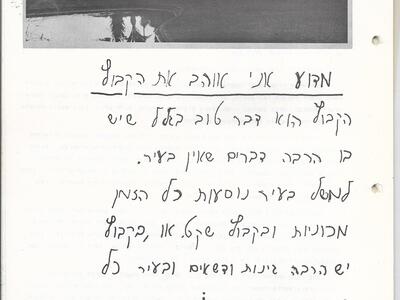 מדוע אני אוהב את הקבוץ
הקבוץ הוא דבר טוב בגלל שיש
בו הרבה דברים שאין בעיר.
למשל בעיר נוסעות כל הזמן
מכוניות ובקבוץ שקט. או, בקבוץ
יש הרבה גינות ודשאים ובעיר כל